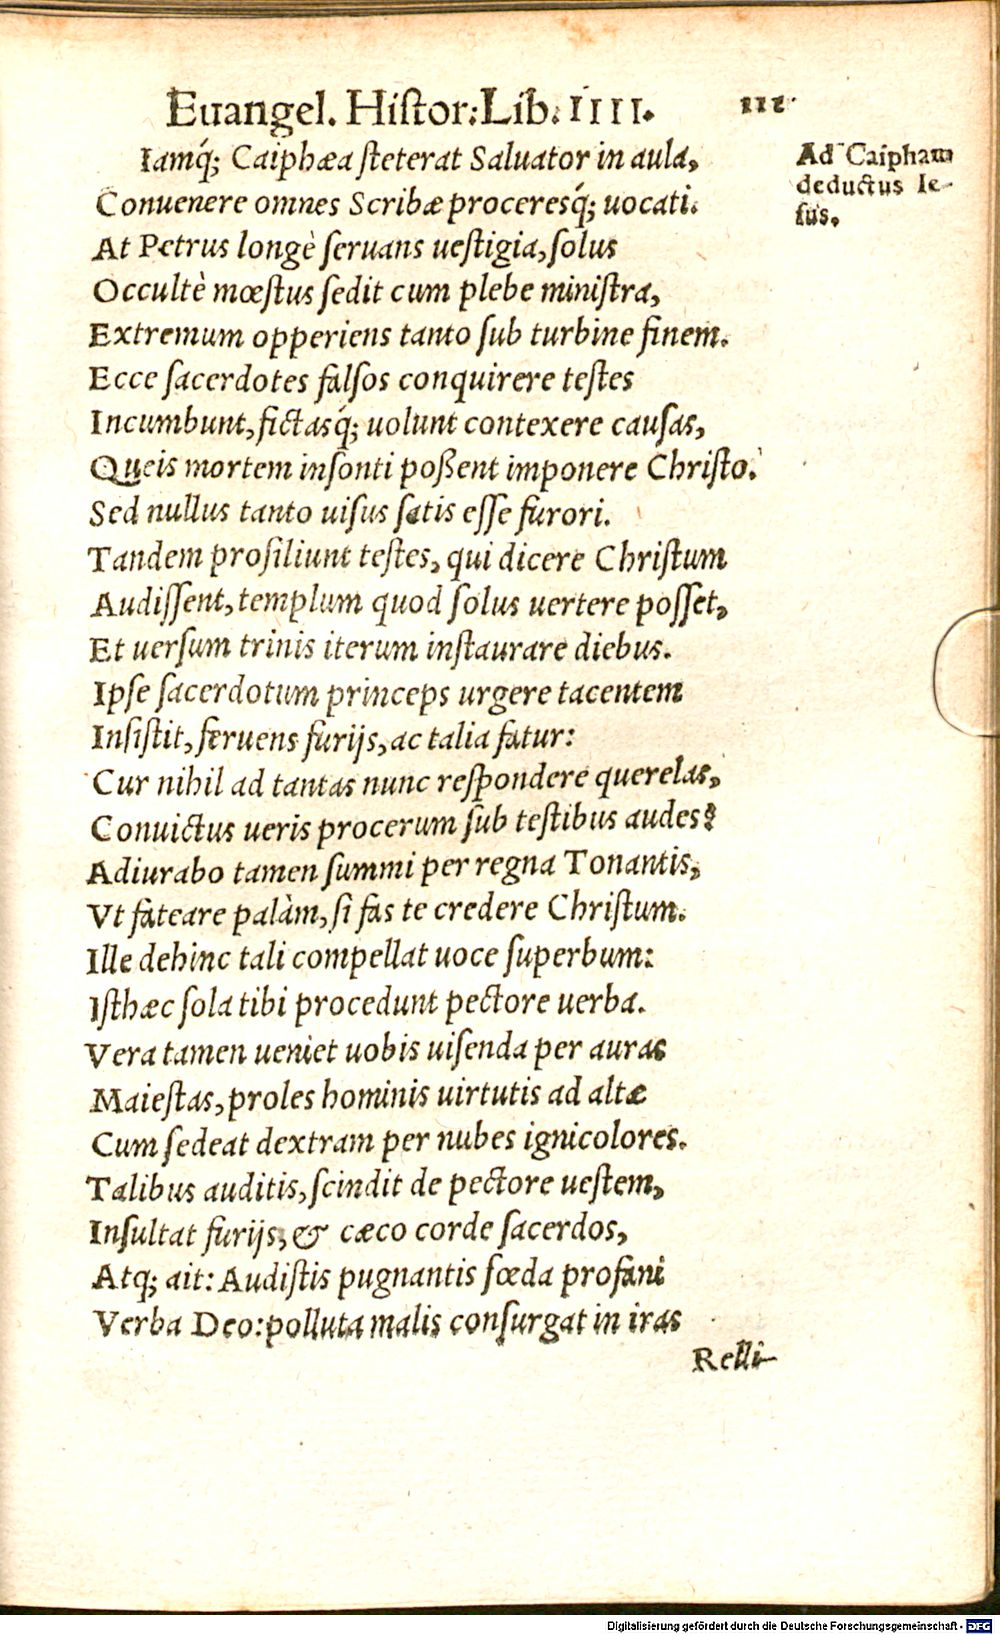 Euangel. Histor: Lib. IIII. 111
Iamq́; Caiphæa ſteterat Saluator in aula,
Ad Caipham
deductus Ie-
ſus.
Conuenere omnes Scribæ proceresq́; uocati.
At Petrus longè ſeruans ueſtigia, ſolus
Occultè mœſtus ſedit cum plebe miniſtra,
Extremum opperiens tanto ſub turbine finem.
Ecce ſacerdotes falſos conquirere teſtes
Incumbunt, fictasq́; uolunt contexere cauſas,
Queis mortem inſonti poßent imponere Chriſto.
Sed nullus tanto uiſus ſatis eſſe furori.
Tandem proſiliunt teſtes, qui dicere Chriſtum
Audiſſent, templum quod ſolus uertere poſſet,
Et uerſum trinis iterum inſtaurare diebus.
Ipſe ſacerdotum princeps urgere tacentem
Inſiſtit, feruens furijs, ac talia fatur:
Cur nihil ad tantas nunc reſpondere querelas,
Conuictus ueris procerum ſub teſtibus audes?
Adiurabo tamen ſummi per regna Tonantis,
Vt fateare palàm, ſi fas te credere Chriſtum.
Ille dehinc tali compellat uoce ſuperbum:
Iſthæc ſola tibi procedunt pectore uerba.
Vera tamen ueniet uobis uiſenda per auras
Maieſtas, proles hominis uirtutis ad altæ
Cum ſedeat dextram per nubes ignicolores.
Talibus auditis, ſcindit de pectore ueſtem,
Inſultat furijs, & cæco corde ſacerdos,
Atq; ait: Audiſtis pugnantis fœda profani
Verba Deo: polluta malis conſurgat in iras
Relli-
Digitalisierung gefördert durch die Deutsche Forschungsgemeinschaft - DFG